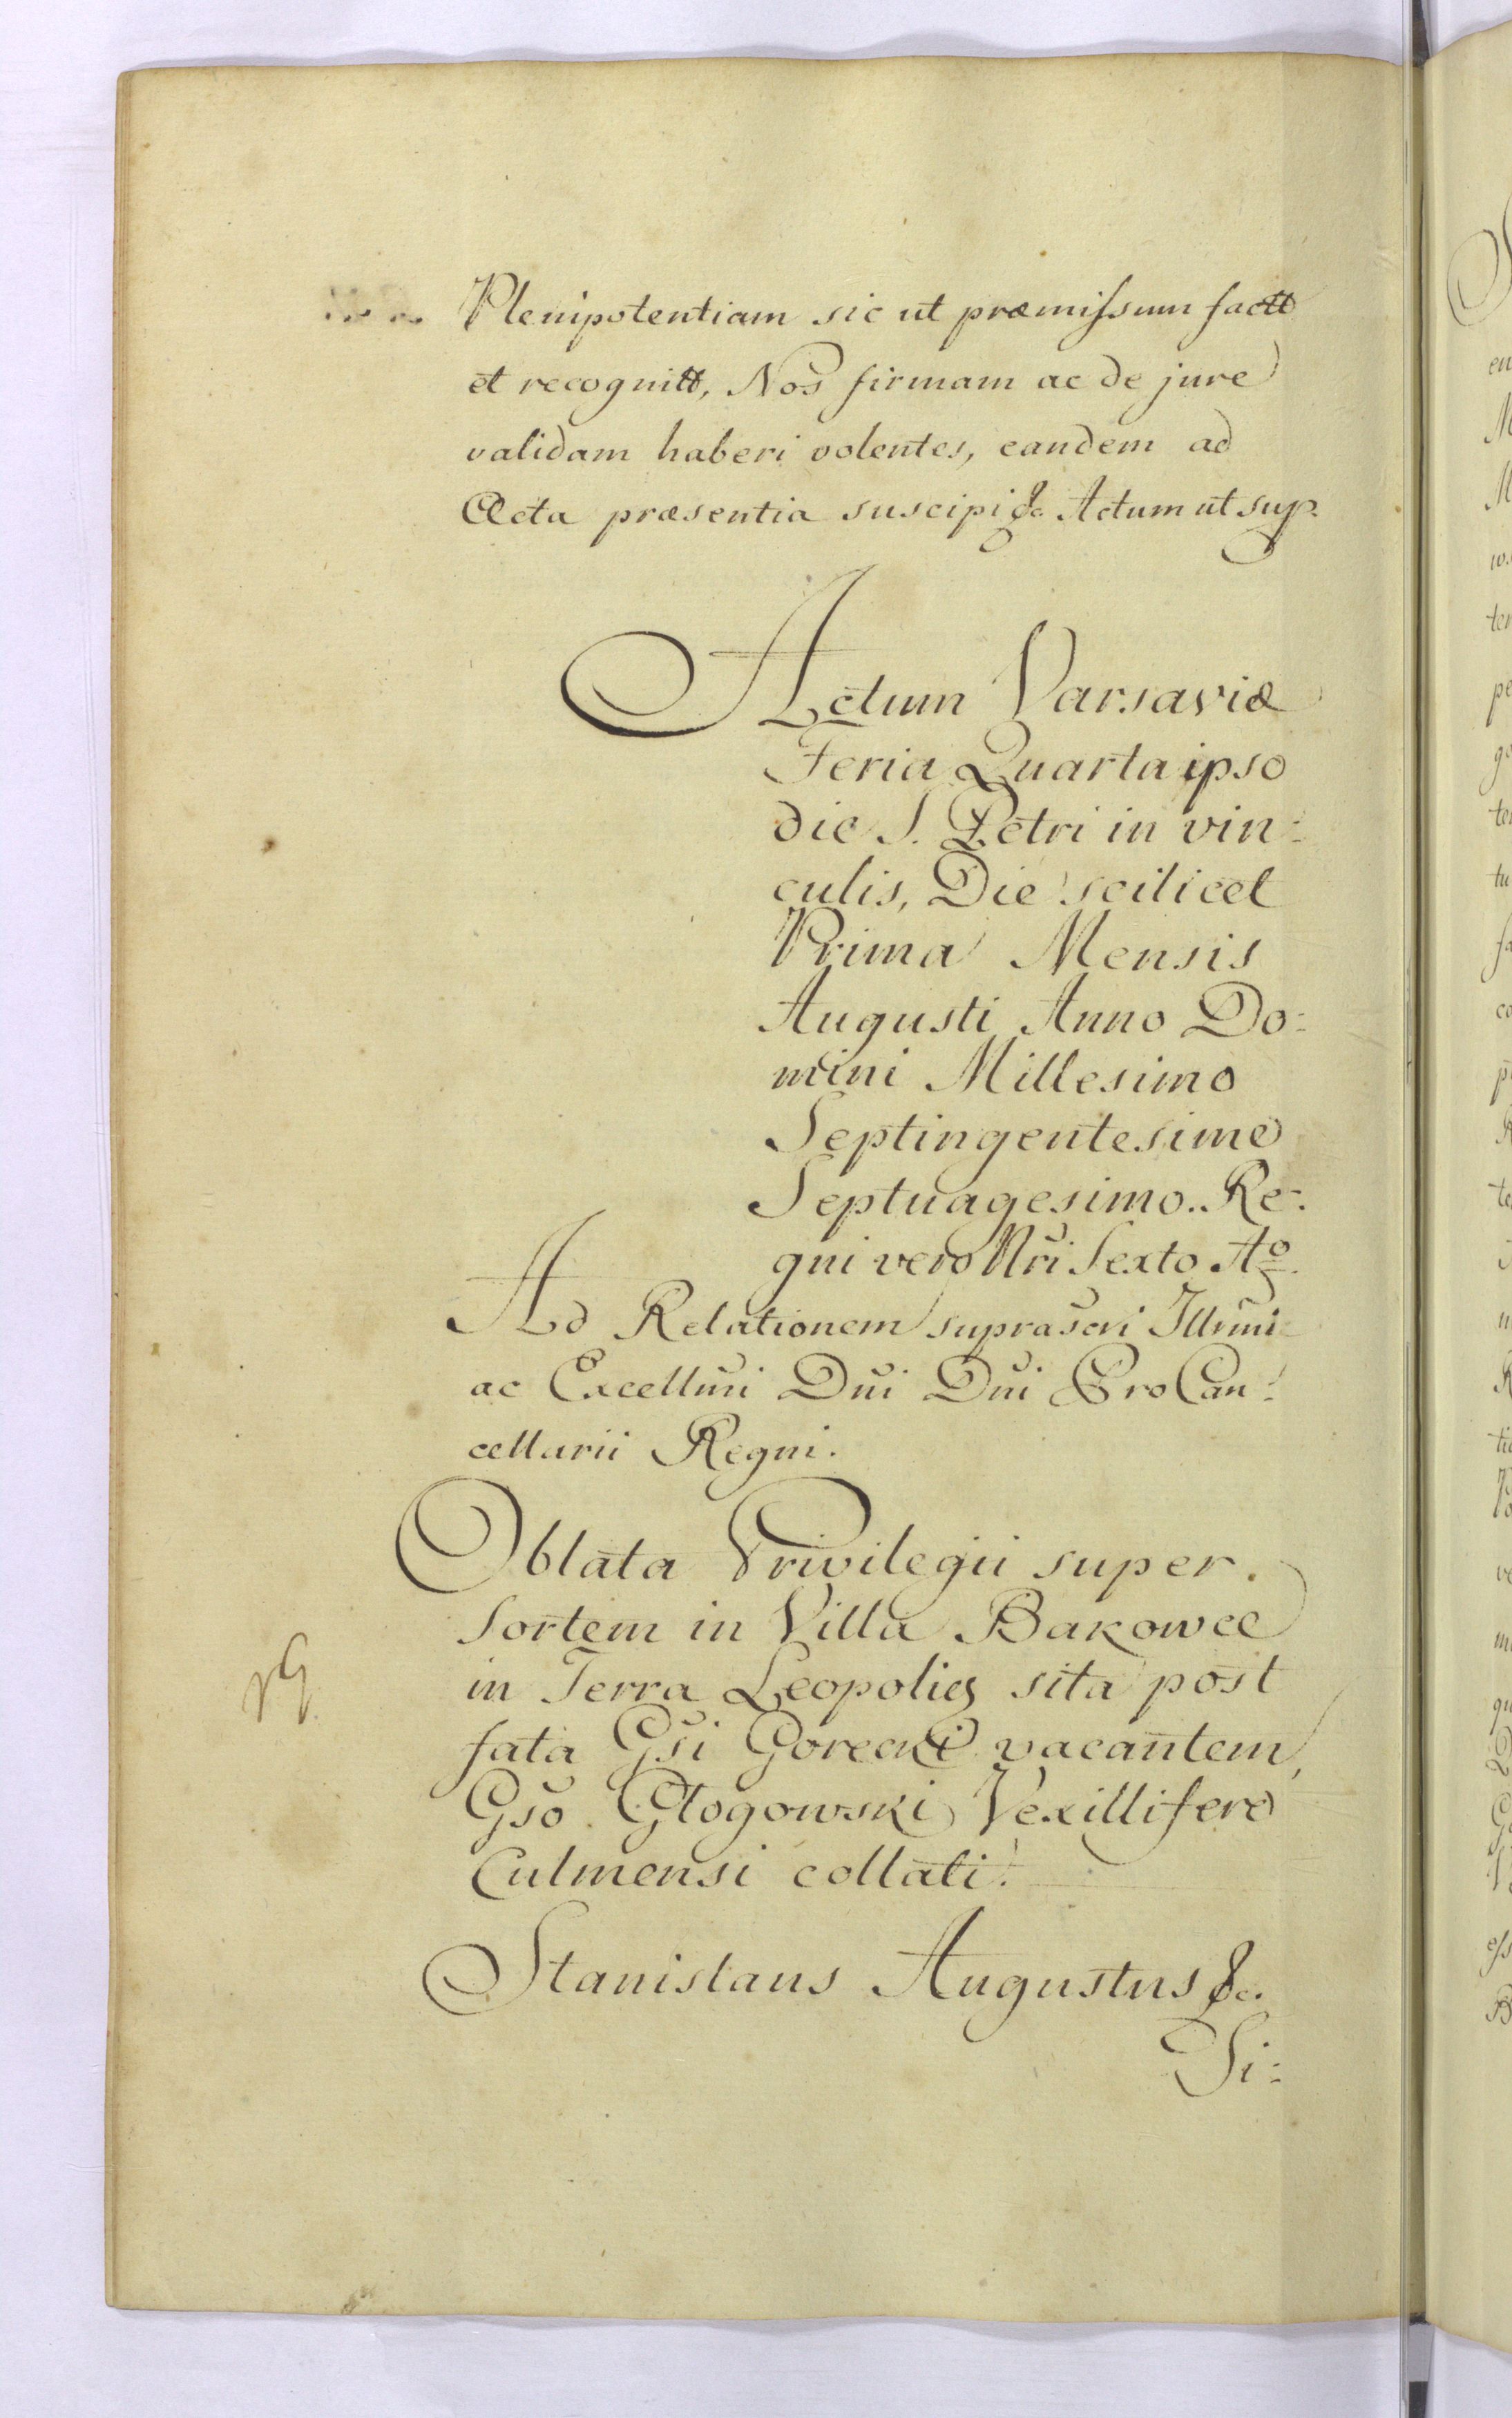 Plenipotentiam sic ut præmissum factt
et recognitt, Nos firmam ac de jure
validam haberi volentes, eandem ad
Acta præsentia suscipi &c. Actum ut sup.
Actum Varsaviæ
Feria Quarta ipso
die S. Petri in vin:
culis, Die scilicet
Prima Mensis
Augusti Anno Do:
mini Millesimo
Septingentesimo
Septuagesimo. Re:
gni vero Nri Sexto Aº.
Ad Relationem suprascri Illrmi
ac Excellmi Dni Dni ProCan:
cellarii Regni.
Oblata Privilegii super
Sortem in Villa Bakowce
in Terra Leopolien sita post
fata Gsi Gorecki vacantem,
Gso Głogowski Vexillifero
Culmensi collati.
Stanislaus Augustus &c.
Si: